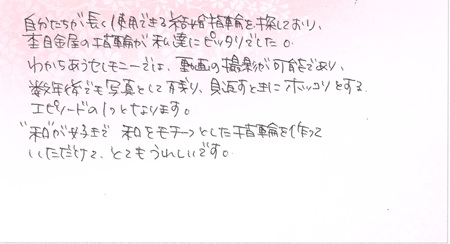 自分たちが長く使用できる結婚指輪を探しており、
杢目金屋の指輪が私達にピッタリでした。
わかちあうセレモニーでは、動画の撮影が可能であり、
数年後でも写真として残り、見返すと更にホッコリとする
エピソードの1つとなります。
"和"が好きで 和をモチーフとした指輪を作って
いただけて、とてもうれしいです。